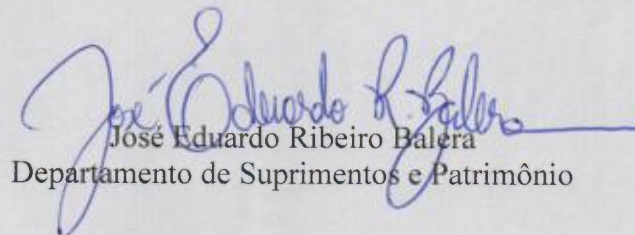 José Eduardo R. Balera
José Eduardo Ribeiro Balera
Departamento de Suprimentos e Patrimônio